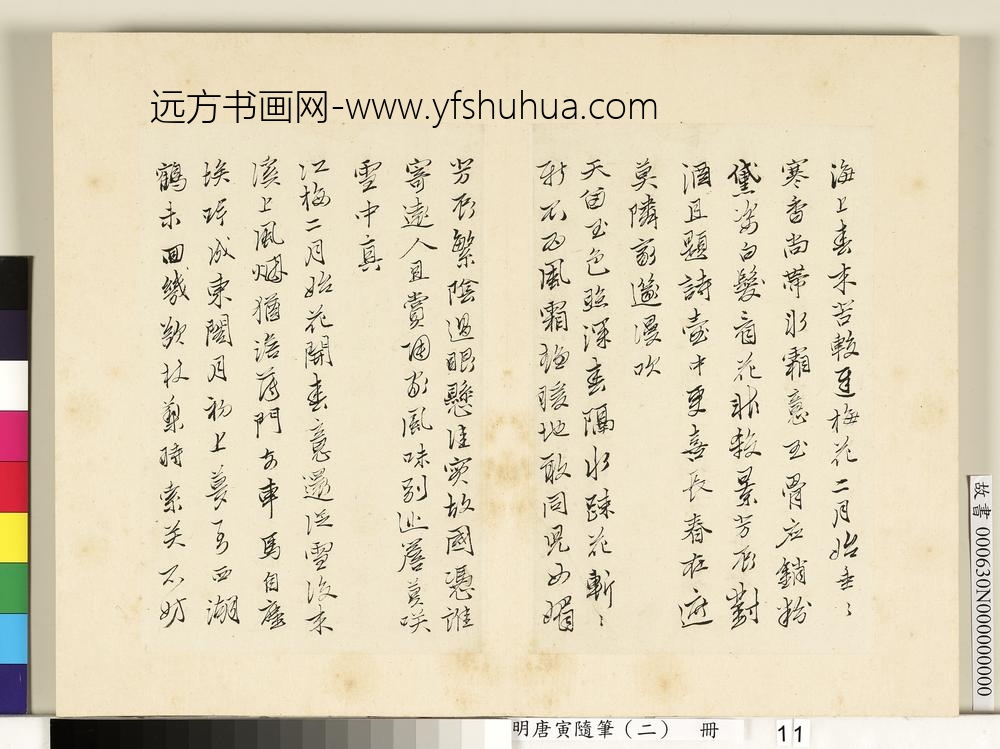 远方书画网-www.yfshuhua.com
海上春来苦較遲梅花二月始垂〻
寒香尚帶冰霜意玉骨應銷粉
黛姿白髮看花非殺景芳辰對
酒且題詩壺中更喜長春在
莫隣家邀漫吹
天留玉色照深春隔水疎花嶄〻
新不西風霜暖地敢同兒女媚
芳辰繁陰過眼懸佳實故國憑誰
寄遠人且賞風味別簷莫咲
雪中真
江梅二月始花開春意還從雪後來
溪上風烟猶澹蕩門前車馬自塵
埃成東閣月初上夢到西湖
鶴未回幾欲杖藜時索笑不妨
故書 000630N000000000
明唐寅隨筆（二） 冊
11